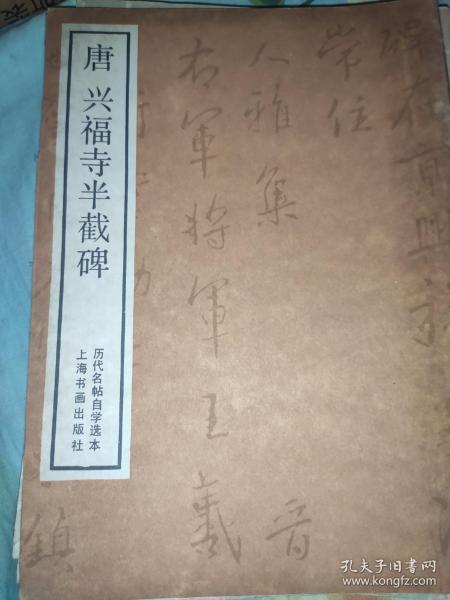 唐 兴福寺半截碑
历代名帖自学选本
上海书画出版社
碑在京兴
常住
人雅集
右军将军王羲
晋
镇
孔夫子旧书网
www.kongfz.com